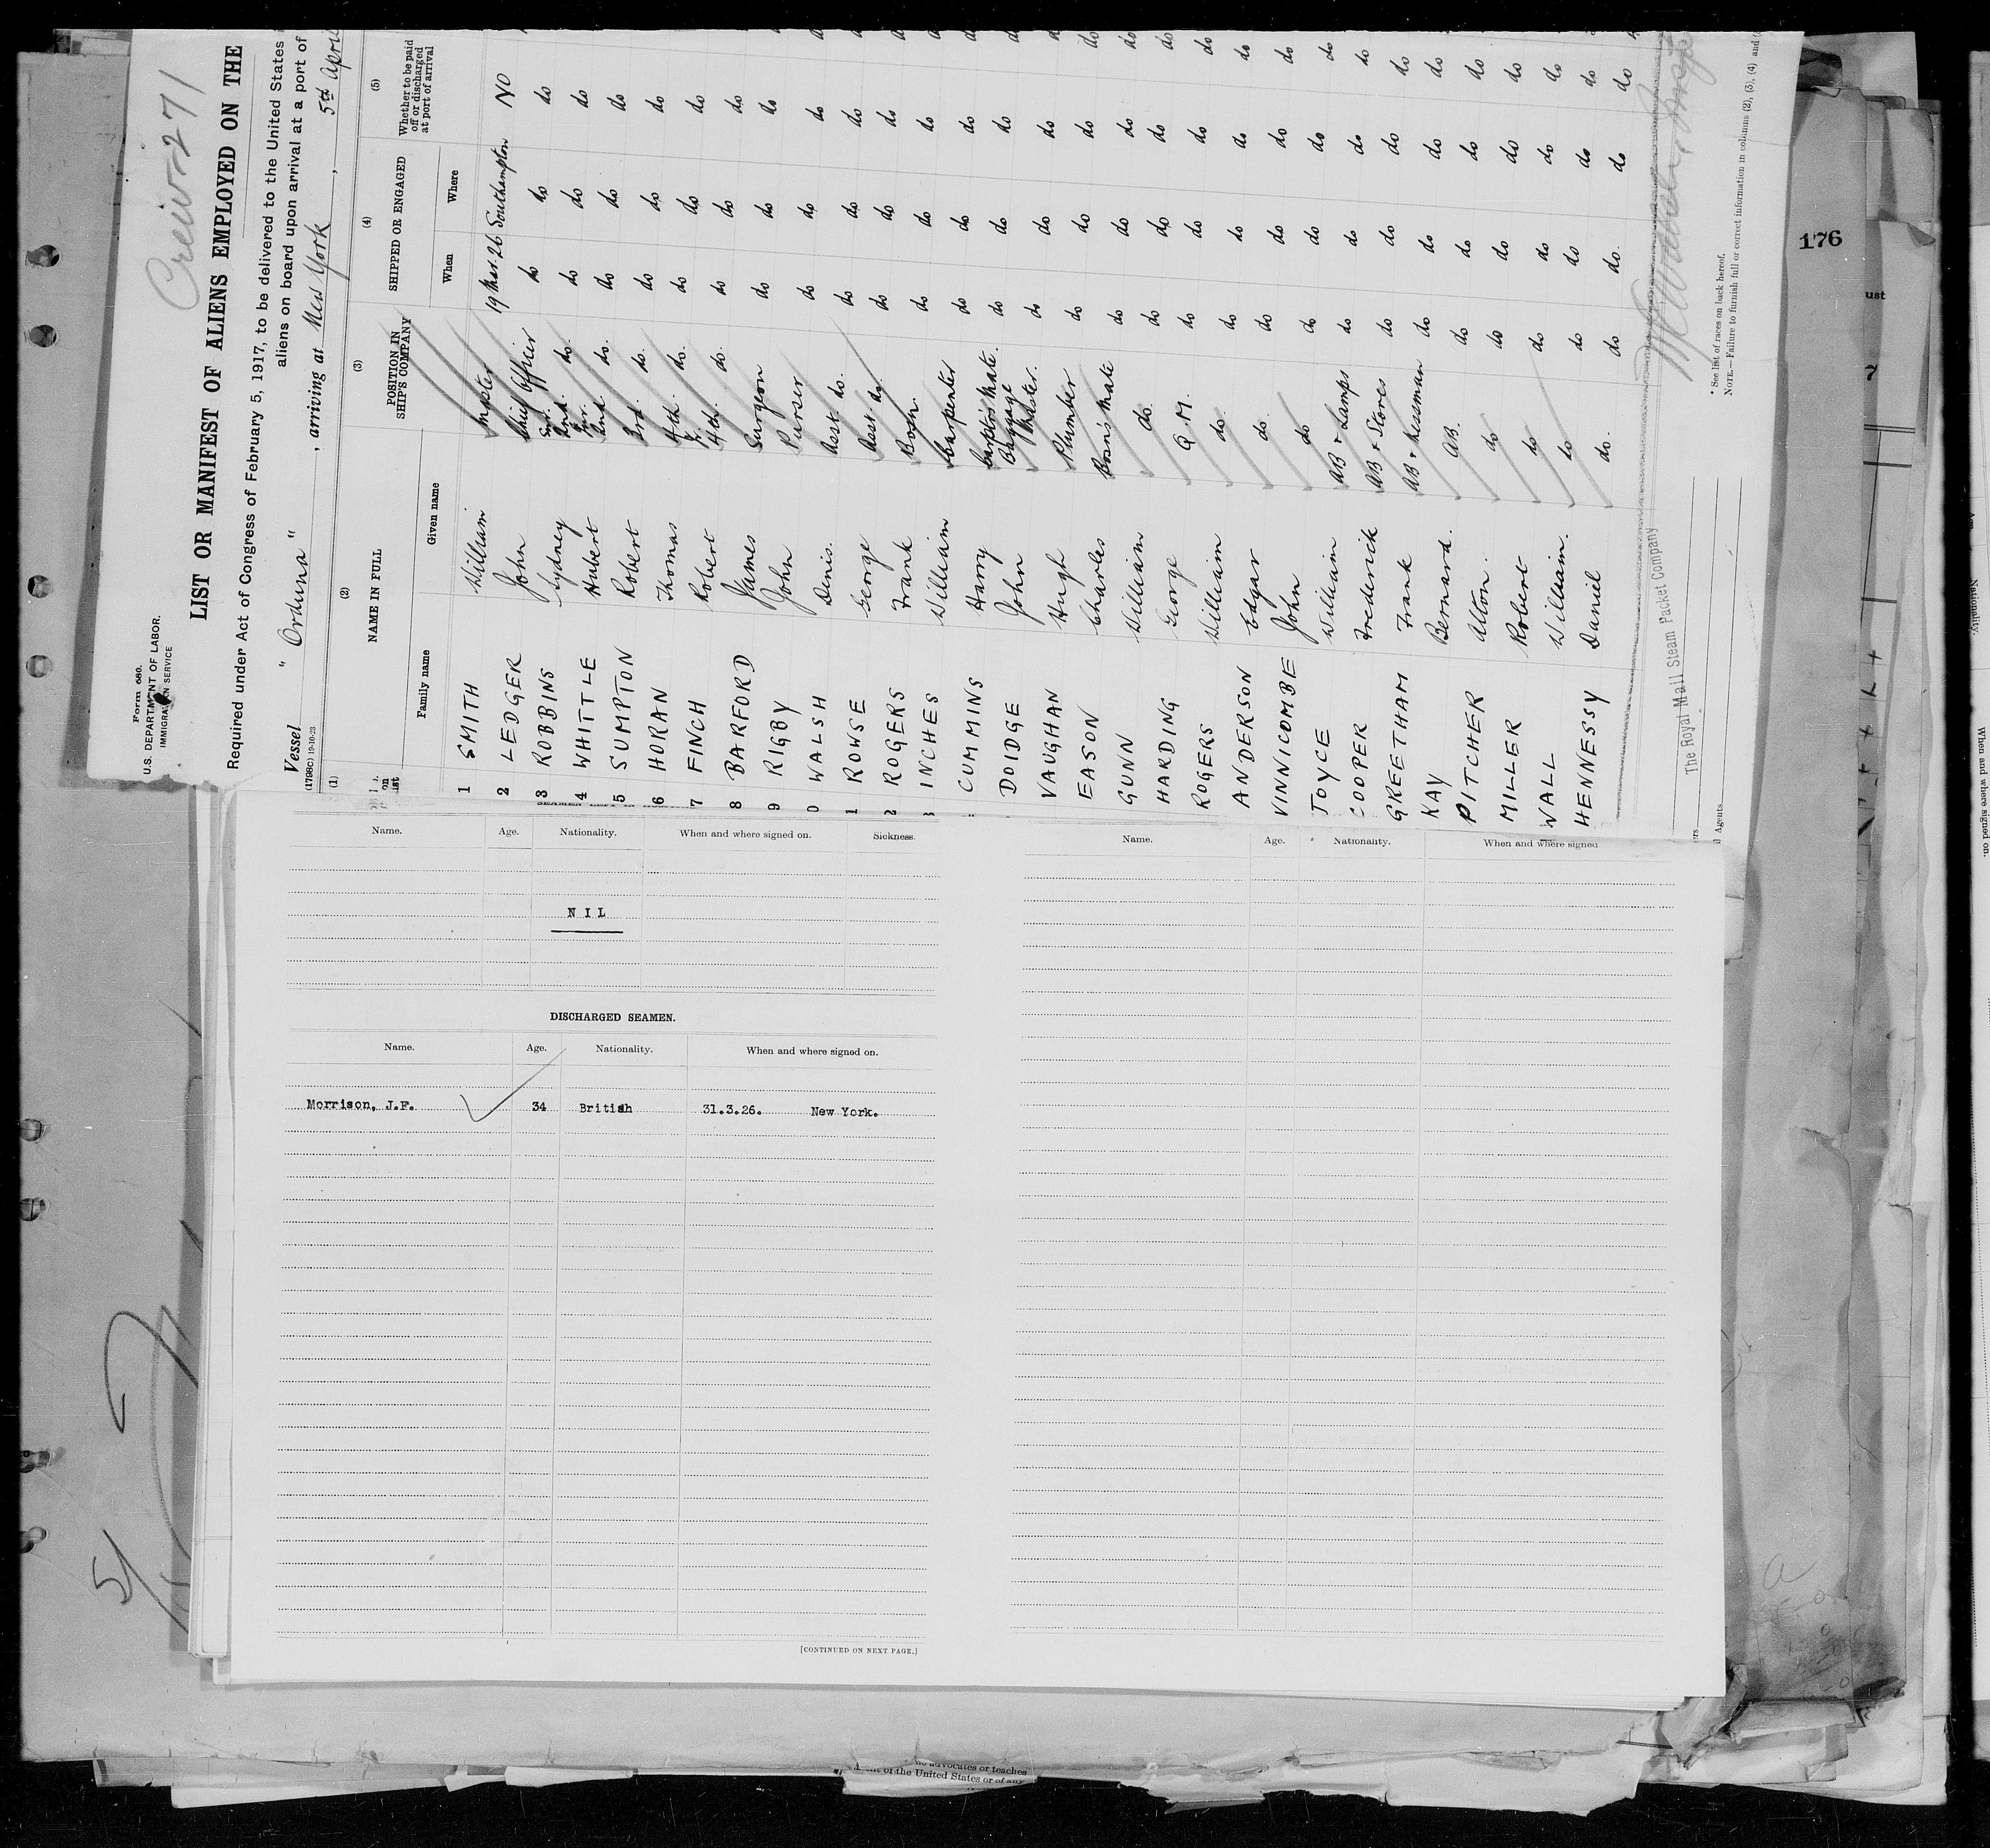 Crew 271
Form 680.
U.S. DEPARTMENT OF LABOR.
IMMIGRATION SERVICE
LIST OR MANIFEST OF ALIENS EMPLOYED ON THE
Required under Act of Congress of February 5, 1917, to be delivered to the United States
aliens on board upon arrival at a port of
Vessel "Orduna", arriving at New York, 5th April
(1798C) 19-10-23
(1) (2) (3) (4) (5)
NAME IN FULL POSITION IN SHIP'S COMPANY SHIPPED OR ENGAGED Whether to be paid off or discharged at port of arrival
Family name Given name When Where
1 SMITH William Master 19 Mar. 26 Southampton NO
2 LEDGER John Chief Officer do do do
3 ROBBINS Sydney Snr. 2nd. do. do do do
4 WHITTLE Hubert Jnr. 2nd do. do do do
5 SUMPTON Robert 3rd. do. do do do
6 HORAN Thomas 4th. do. do do do
7 FINCH Robert 4th. do. do do do
8 BARFORD James Surgeon do do do
9 RIGBY John Purser do do do
0 WALSH Denis. Asst. do. do do do
1 ROWSE George Asst. do. do do do
2 ROGERS Frank Bosn. do do do
3 INCHES William Carpenter do do do
CUMMINS Harry Carptr's Mate. do do do
DOIDGE John Baggage Master. do do do
VAUGHAN Hugh Plumber do do do
EASON Charles Bosn's Mate do do do
GUNN William do. do do do
HARDING George Q.M. do do do
ROGERS William do. do do do
ANDERSON Edgar do. do do do
VINNICOMBE John do do do do
JOYCE William AB & Lamps do do do
COOPER Frederick AB & Stores do do do
GREETHAM Frank AB & Messman do do do
KAY Bernard. AB. do do do
PITCHER Alton. do do do do
MILLER Robert do do do do
WALL William. do do do do
HENNESSY Daniel do. do do. do
The Royal Mail Steam Packet Company
Agents
* See list of races on back hereof.
NOTE.—Failure to furnish full or correct information in columns (2), (3), (4) and
Name. Age. Nationality. When and where signed on. Sickness.
NIL
DISCHARGED SEAMEN.
Name. Age. Nationality. When and where signed on.
Morrison, J.F. 34 British 31.3.26. New York.
[CONTINUED ON NEXT PAGE.]
Name. Age. Nationality. When and where signed
176
ust
7
Nationality.
When and where signed on.
5/
advocates or teaches
of the United States or of any